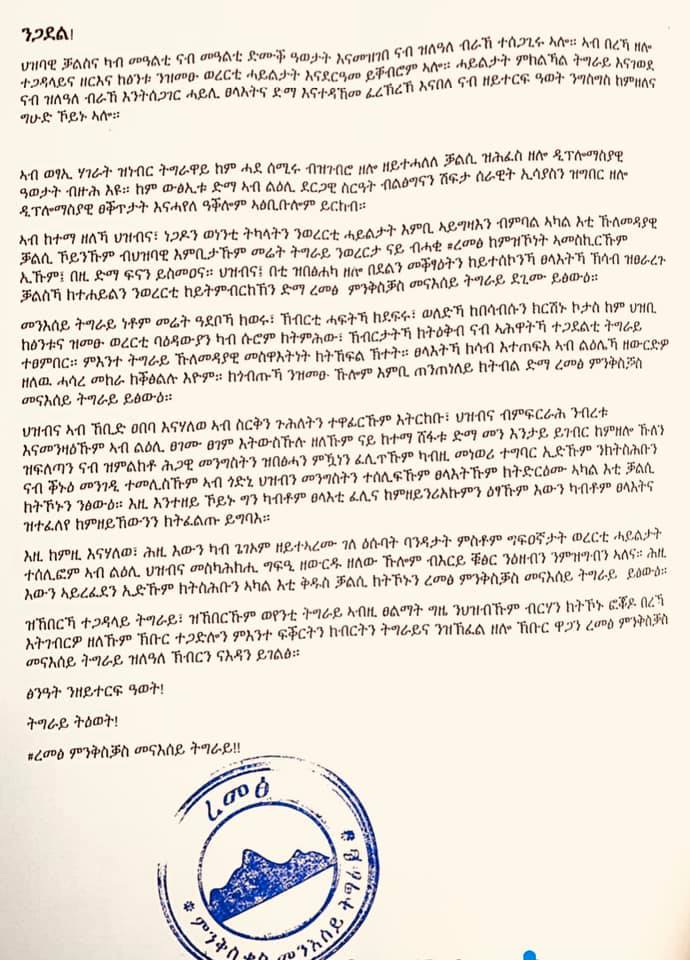 ንጋደል!
ህዝባዊ ቓልስና ካብ መዓልቲ ናብ መዓልቲ ድሙቕ ዓወታት እናመዝገበ ናብ ዝለዓለ ብራኸ ተሰጋጊሩ ኣሎ። ኣብ በረኻ ዘሎ
ተጋዳላይና ዘርእና ከፅንቱ ንዝመፁ ወረርቲ ሓይልታት እናደርዓመ ይቐብሮም ኣሎ። ሓይልታት ምክልኻል ትግራይ እናገወደ
ናብ ዝለዓለ ብራኸ እንትሰጋገር ሓይሊ ፀላእትና ድማ እናተዳኸመ ፈረኽረኽ እናበለ ናብ ዘይተርፍ ዓወት ንግስግስ ከምዘለና
ግሁድ ኾይኑ ኣሎ።
ኣብ ወፃኢ ሃገራት ዝነብር ትግራዋይ ከም ሓደ ሰሚሩ ብዝገብሮ ዘሎ ዘይተሓለለ ቓልሲ ዝሕፈስ ዘሎ ዲፕሎማስያዊ
ዓወታት ብዙሕ እዩ። ከም ውፅኢቱ ድማ ኣብ ልዕሊ ደርጋዊ ስርዓት ብልፅግናን ሽፍታ ሰራዊት ኢሳያስን ዝግበር ዘሎ
ዲፕሎማስያዊ ፀቕጥታት እናሓየለ ዓቕሎም ኣፅቢቡሎም ይርከብ።
ኣብ ከተማ ዘለኻ ህዝብና፣ ነጋዶን ወነንቲ ትካላትን ንወረርቲ ሓይልታት እምቢ ኣይግዛእን ብምባል ኣካል እቲ ኹለመዳያዊ
ቓልሲ ኾይንኹም ብህዝባዊ እምቢታኹም መሬት ትግራይ ንወረርታ ናይ ብሓቂ #ረመፅ ከምዝኾነት ኣመስኪርኹም
ኢኹም፤ በዚ ድማ ፍናን ይስመዐና። ህዝብና፤ በቲ ዝበፅሐካ ዘሎ በደልን መቕፃዕትን ከይተሰኮንኻ ፀላእትኻ ኻሳብ ዝፀራረጉ
ቓልስኻ ከተሐይልን ንወረርቲ ከይትምብርከኸን ድማ ረመፅ ምንቅስቓስ መናእሰይ ትግራይ ደጊሙ ይፅውዕ።
መንእሰይ ትግራይ ነቶም መሬት ዓደቦኻ ከወሩ፣ ኽብርቲ ሓፍትኻ ከደፍሩ፣ ወለድኻ ከበሳብሱን ክርሽኑ ኮታስ ከም ህዝቢ
ከፅንቱና ዝመፁ ወረርቲ ባዕዳውያን ካብ ሱሮም ከትምሕው፣ ኽብርታትኻ ከትዕቅብ ናብ ኣሕዋትኻ ተጋደልቲ ትግራይ
ተፀምበር። ምእንተ ትግራይ ኹለመዳያዊ መስዋእትነት ከትኸፍል ኻተት። ፀላእትኻ ከሳብ እተጠፍእ ኣብ ልዕሌኻ ዘውርድዎ
ዘለዉ ሓሳረ መከራ ከቐፅልሉ እዮም። ከጎብጡኻ ንዝመፁ ኹሎም እምቢ ጠንጠነለይ ከትብል ድማ ረመፅ ምንቅስቓስ
መናእሰይ ትግራይ ይፅውዕ።
ህዝብና ኣብ ኸቢድ ፀበባ እናሃለወ ኣብ ስርቅን ጉሕለትን ተዋፊርኹም እትርከቡ፣ ህዝብና ብምፍርራሕ ንብረቱ
እናመንዛዕኹም ኣብ ልዕሊ ፀገሙ ፀገም እትውስኹሉ ዘለኹም ናይ ከተማ ሽፋቱ ድማ መን እንታይ ይገብር ከምዘሎ ኹለን
ዝፍለጣን ናብ ዝምልከቶ ሕጋዊ መንግስትን ዝበፅሓን ምዃነን ፈሊጥኹም ካብዚ መነወሪ ተግባር ኢድኹም ንክትስሕቡን
ናብ ቕኑዕ መንገዲ ተመሊስኹም ኣብ ጎድኒ ህዝብን መንግስትን ተሰሊፍኹም ፀላእትኹም ከትድርዕሙ ኣካል እቲ ቓልሲ
ከትኾኑን ንፅውዕ። እዚ እንተዘይ ኾይኑ ግን ካብቶም ፀላእቲ ፈሊና ከምዘይንሪአኩምን ዕፃኹም እውን ካብቶም ፀላእትና
ዝተፈለየ ከምዘይኸውንን ከትፈልጡ ይግባእ።
እዚ ከምዚ እናሃለወ፣ ሕዚ እውን ካብ ጌጋኦም ዘይተኣረሙ ገለ ዕሱባት ባንዳታት ምስቶም ግፍዐኛታት ወረርቲ ሓይልታት
ተሰሊፎም ኣብ ልዕሊ ህዝብና መስካሕክሒ ግፍዒ ዘውርዱ ዘለው ኹሎም ብእርይ ቑፅር ንዕዘብን ንምዝግብን ኣለና። ሕዚ
እውን ኣይረፈደን ኢድኹም ከትስሕቡን ኣካል እቲ ቅዱስ ቓልሲ ከትኾኑን ረመፅ ምንቅስቓስ መናእሰይ ትግራይ ይፅውዕ።
ዝኸበርኻ ተጋዳላይ ትግራይ፣ ዝኸበርኹም ወየንቲ ትግራይ ኣብዚ ፀልማት ግዜ ንህዝብኹም ብርሃን ከትኾኑ ፎቖዶ በረኻ
እትገብርዎ ዘለኹም ኽቡር ተጋድሎን ምእንተ ፍቕርትን ከብርትን ትግራይና ንዝኸፈል ዘሎ ኽቡር ዋጋን ረመፅ ምንቅስቓስ
መናእሰይ ትግራይ ዝለዓለ ኽብርን ናእዳን ይገልፅ።
ፅንዓት ንዘይተርፍ ዓወት!
ትግራይ ትዕወት!
#ረመፅ ምንቅስቓስ መናእሰይ ትግራይ!!
ረመፅ
* ምንቅስቓስ መንእሰይ ትግራይ *